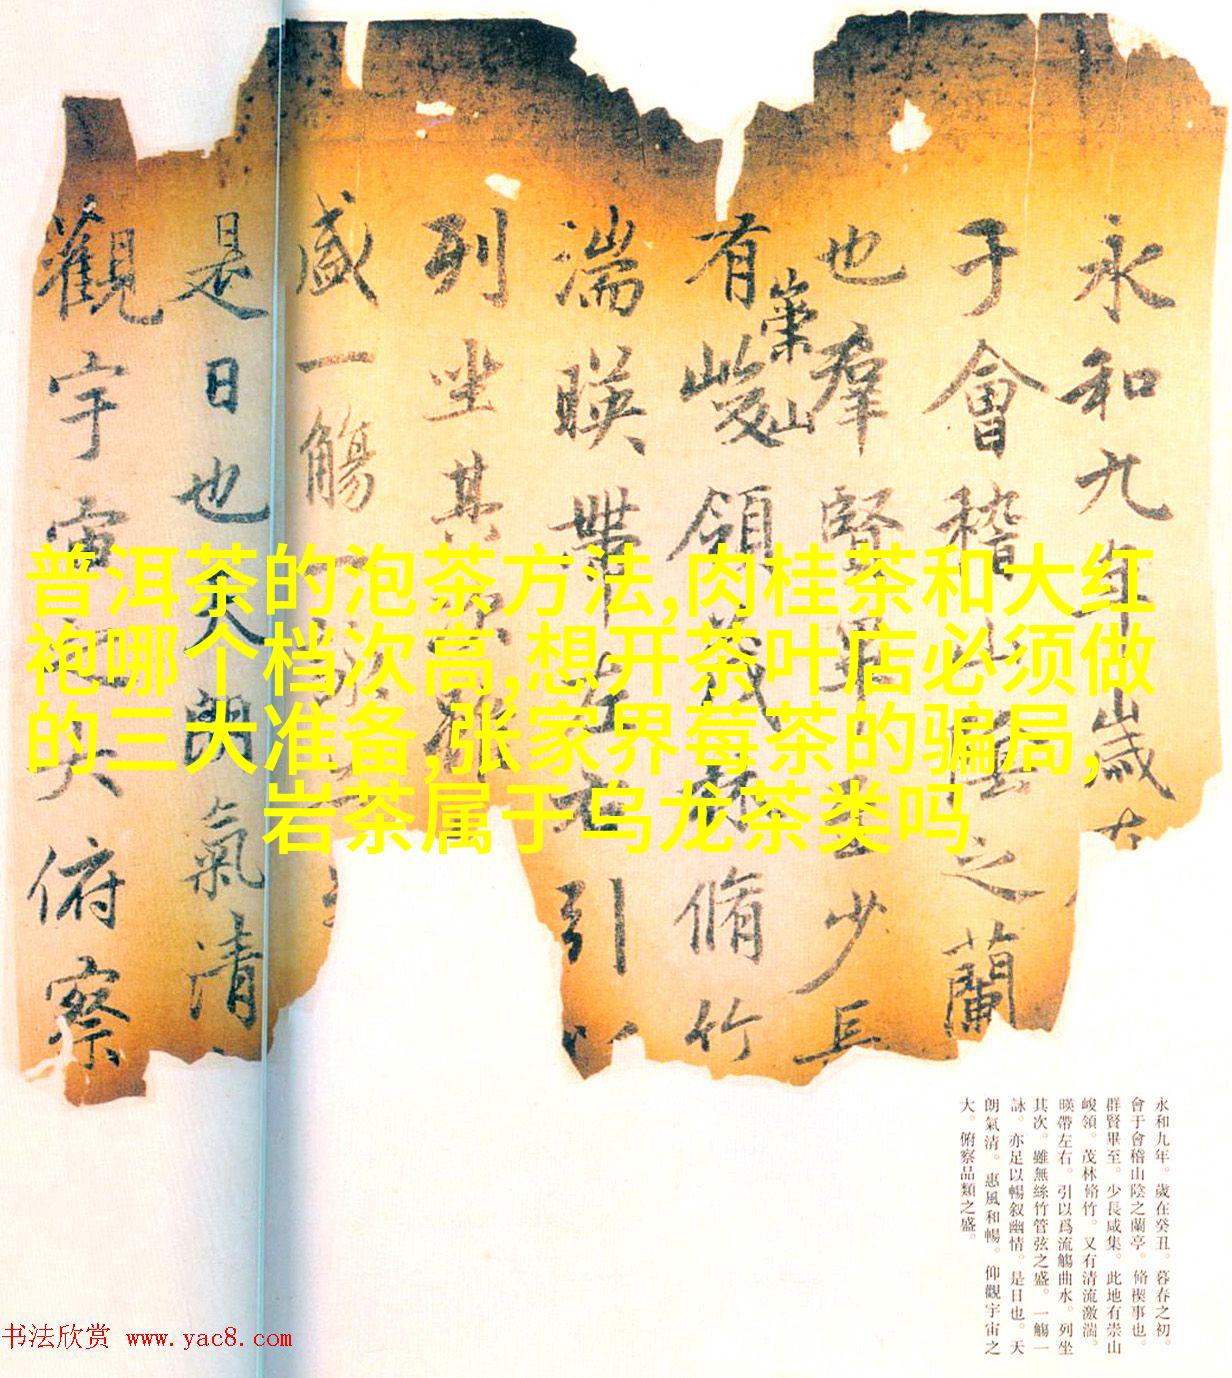 永和九年歲在
于會稽山陰之蘭
也羣賢畢至少長
有崇山峻領茂林脩竹
湍暎帶左右引以
列坐其次雖
盛一觴一詠亦
是日也天朗氣清
觀宇宙之大俯察
普洱茶的泡茶方法,肉桂茶和大红
袍哪个档次高,想开茶叶店必须做
的三大准备,张家界莓茶的骗局,
岩茶属于乌龙茶类吗
永和九年。歲在癸丑。暮春之初。
會于會稽山陰之蘭亭。脩禊事也。
群賢畢至。少長咸集。此地有崇山
峻領。茂林脩竹。又有清流激湍。
暎帶左右。引以爲流觴曲水。列坐
其次。雖無絲竹管弦之盛。一觴一
詠。亦足以暢叙幽情。是日也。天
朗氣清。惠風和暢。仰觀宇宙之
大。俯察品類之盛。
书法欣赏 www.yac8.com